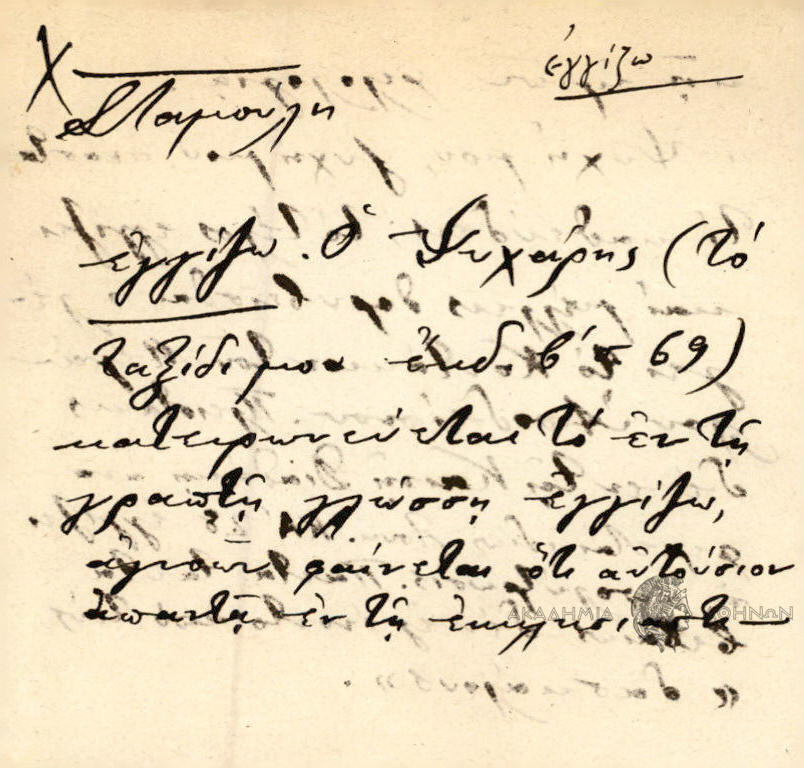 Χ
ἐγγίζω
Σταμούλη
ἐγγίζω. ὁ Ψυχάρης (τὸ
ταξίδι μου ἔκδ. β΄ σ 69)
κατειρωνεύεται τὸ ἐν τῇ
γραπτῇ γλώσσῃ ἐγγίζω,
ἀγνοῶν φαίνεται ὅτι αὐτούσιον
ἀπαντᾷ ἐν τῇ ἐκκλησιαστι—
ΑΚΑΔΗΜΙΑ ΑΘΗΝΩΝ